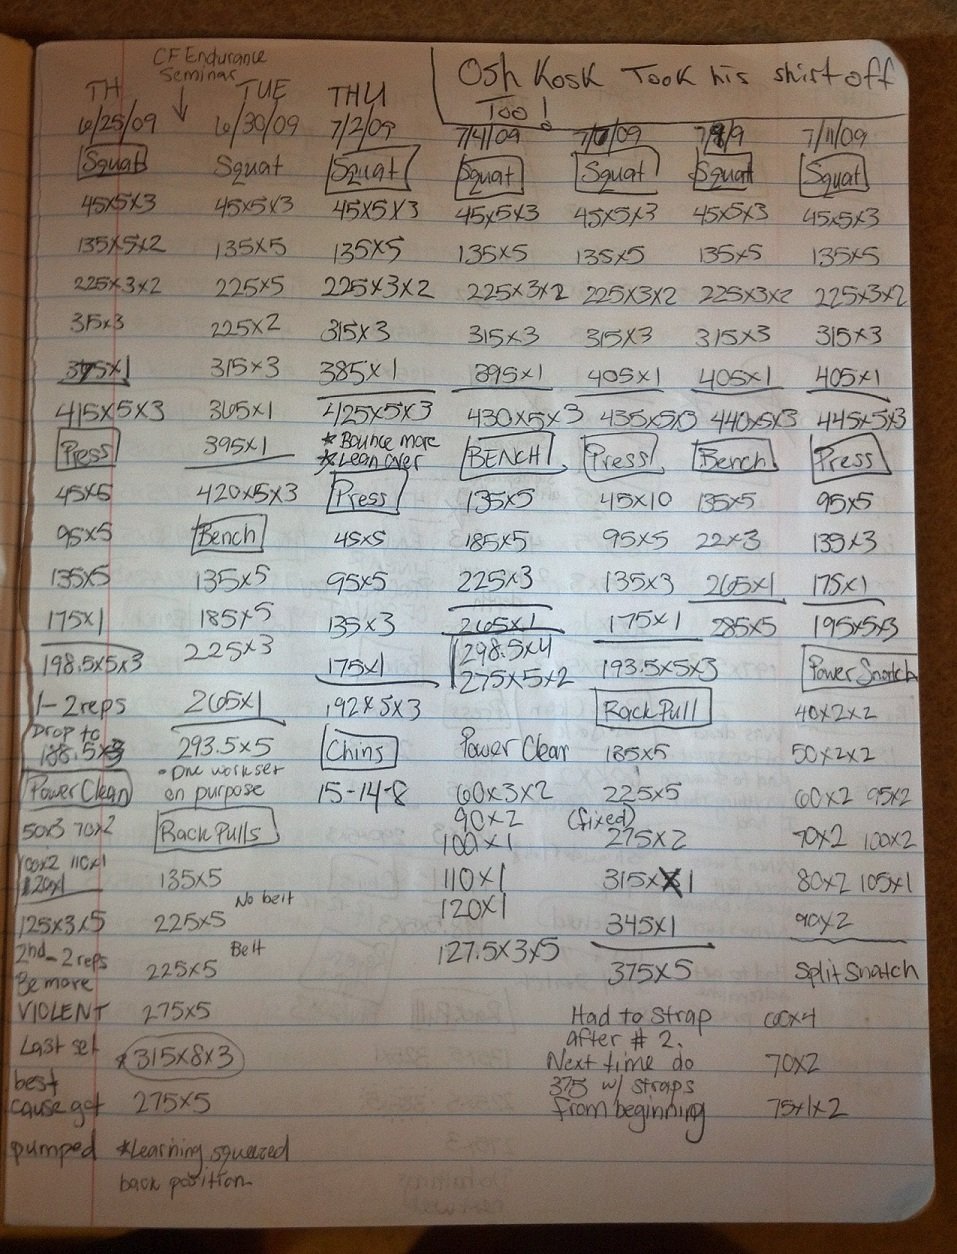 CF Endurance
Seminar
Osh Kosk Took his shirt off
Too!
TH
6/25/09
Squat
45x5x3
135x5x2
225x3x2
315x3
375x1
415x5x3
Press
45x5
95x5
135x5
175x1
198.5x5x3
1-2 reps
Drop to
188.5x3
Power Clean
50x3 70x2
100x2 110x1
120x1
125x3x5
2nd - 2 reps
Be more
VIOLENT
Last set
best
cause got
pumped
TUE
6/30/09
Squat
45x5x3
135x5
225x5
225x2
315x3
365x1
395x1
420x5x3
Bench
135x5
185x5
225x3
265x1
293.5x5
• One work set
on purpose
Rack Pulls
135x5
No belt
225x5
Belt
225x5
275x5
* 315x8x3
275x5
* Learning squeezed
back position
THU
7/2/09
Squat
45x5x3
135x5
225x3x2
315x3
385x1
425x5x3
* Bounce more
* Lean over
Press
45x5
95x5
135x3
175x1
192x5x3
Chins
15-14-8
7/4/09
Squat
45x5x3
135x5
225x3x2
315x3
395x1
430x5x3
BENCH
135x5
185x5
225x3
265x1
298.5x4
275x5x2
Power Clean
60x3x2
90x2
100x1
110x1
120x1
127.5x3x5
Squat
45x5x3
135x5
225x3x2
315x3
405x1
435x5x3
Press
45x10
95x5
135x3
175x1
193.5x5x3
Rack Pull
185x5
225x5
(fixed)
275x2
315x1
345x1
375x5
Had to strap
after #2.
Next time do
375 w/ straps
from beginning
7/9/9
Squat
45x5x3
135x5
225x3x2
315x3
405x1
440x5x3
Bench
135x5
22x3
265x1
285x5
7/11/09
Squat
45x5x3
135x5
225x3x2
315x3
405x1
445x5x3
Press
95x5
135x3
175x1
195x5x3
Power Snatch
40x2x2
50x2x2
60x2 95x2
70x2 100x2
80x2 105x1
90x2
Split Snatch
60x4
70x2
75x1x2